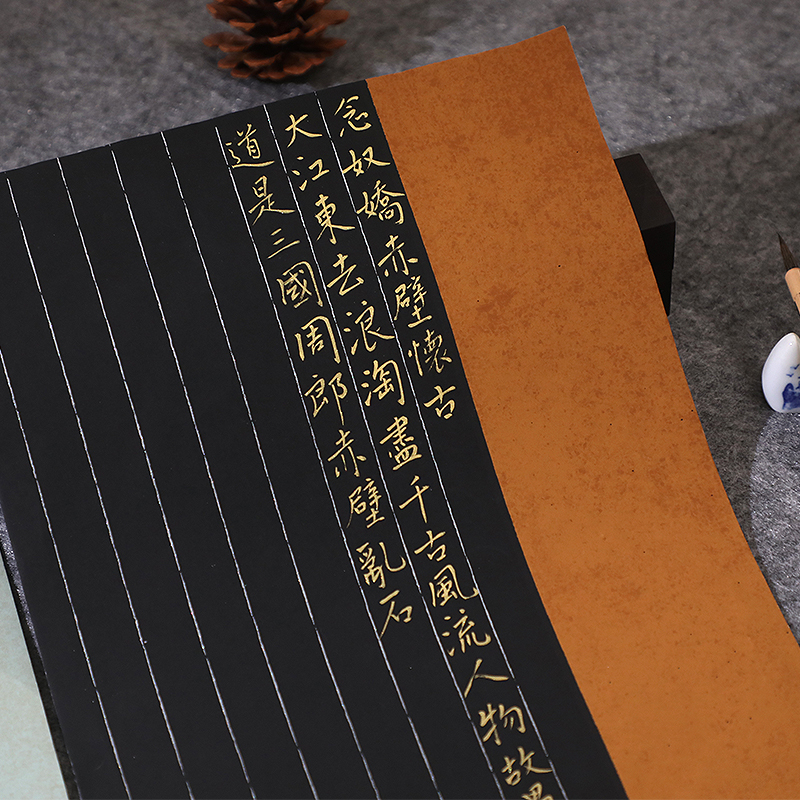 念奴嬌赤壁懷古
大江東去浪淘盡千古風流人物故
道是三國周郎赤壁亂石